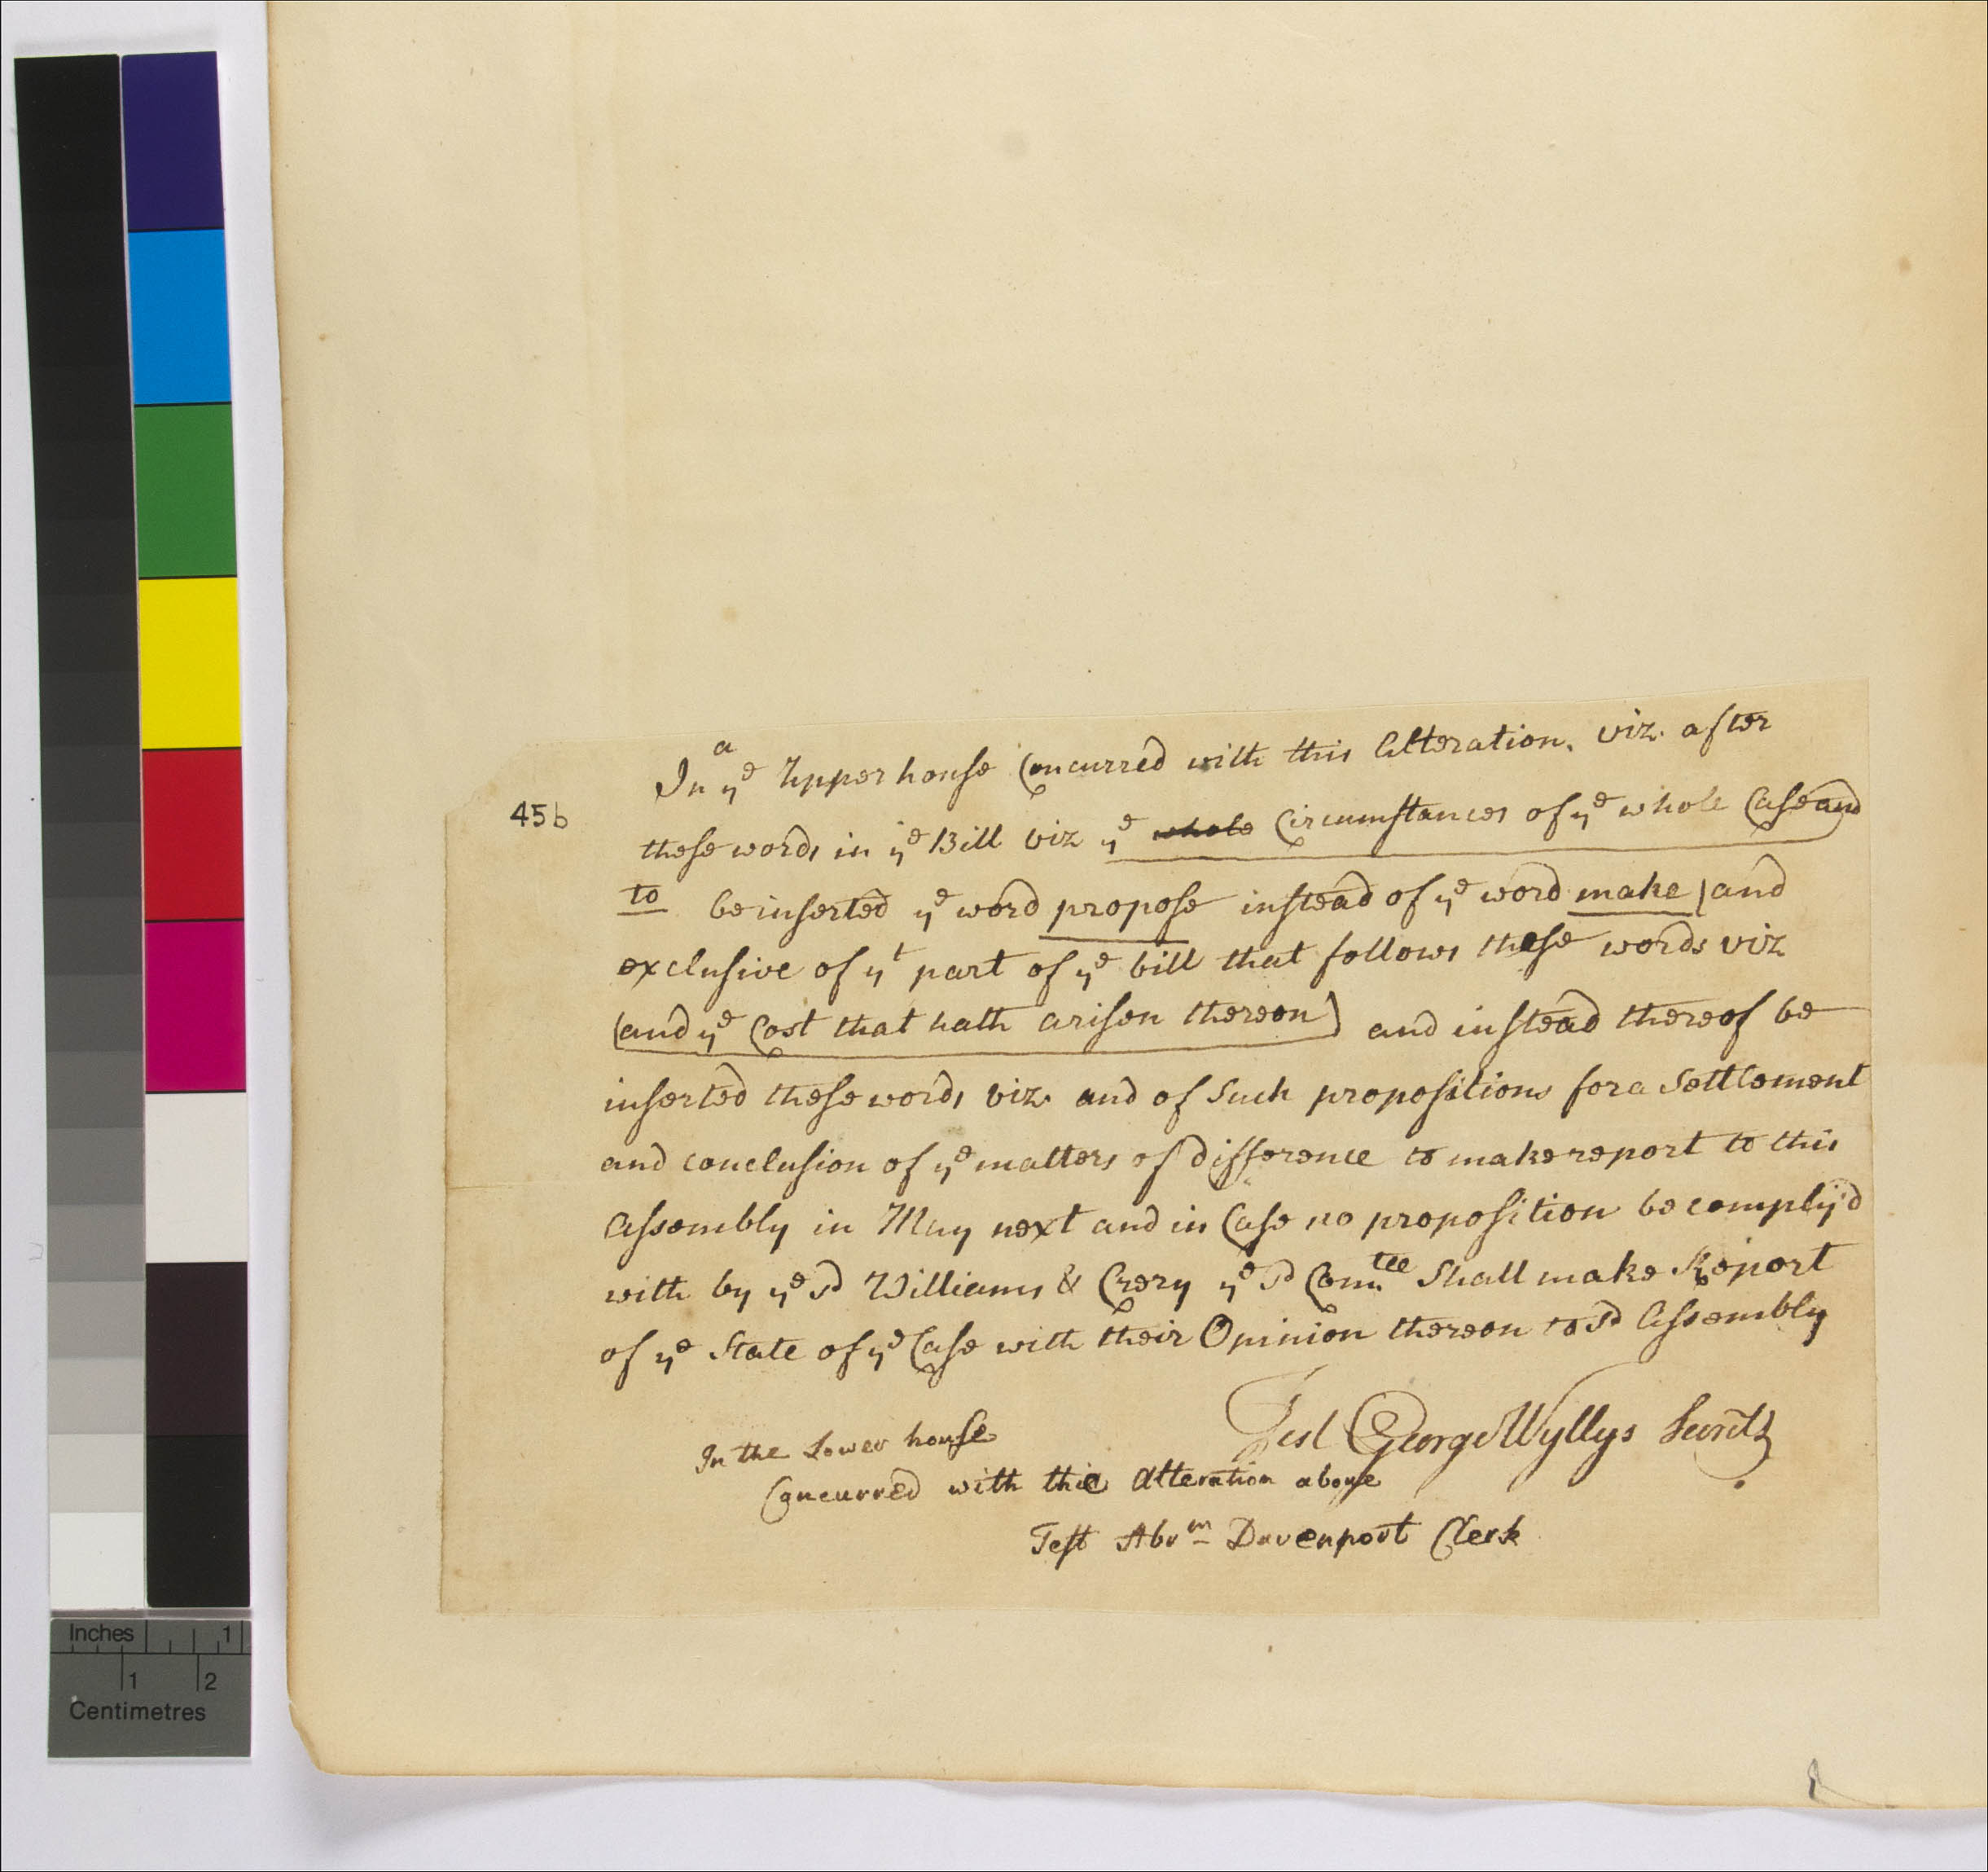 a
In yᵉ Upper house Concurred with this Alteration. viz. after
45b
these words in yᵉ Bill viz yᵉ ~~whole~~ Circumstances of yᵉ whole Case and
to be inserted yᵉ word propose instead of yᵉ word make (and
exclusive of yᵗ part of yᵉ bill that follows these words viz
(and yᵉ Cost that hath arisen thereon) and instead thereof be
inserted these words viz. and of such propositions for a Settlement
and conclusion of yᵉ matters of difference to make report to this
Assembly in May next and in Case no proposition be comply'd
with by yᵉ sᵈ Williams & Crery yᵉ sᵈ Com.ᵗᵉᵉ shall make Report
of yᵉ State of yᵉ Case with their Opinion thereon to sᵈ Assembly
Test George Wyllys Secretʸ
In the Lower house
Concurred with the Alteration above
Test Abrᵐ Davenport Clerk
Inches 1
1 2
Centimetres